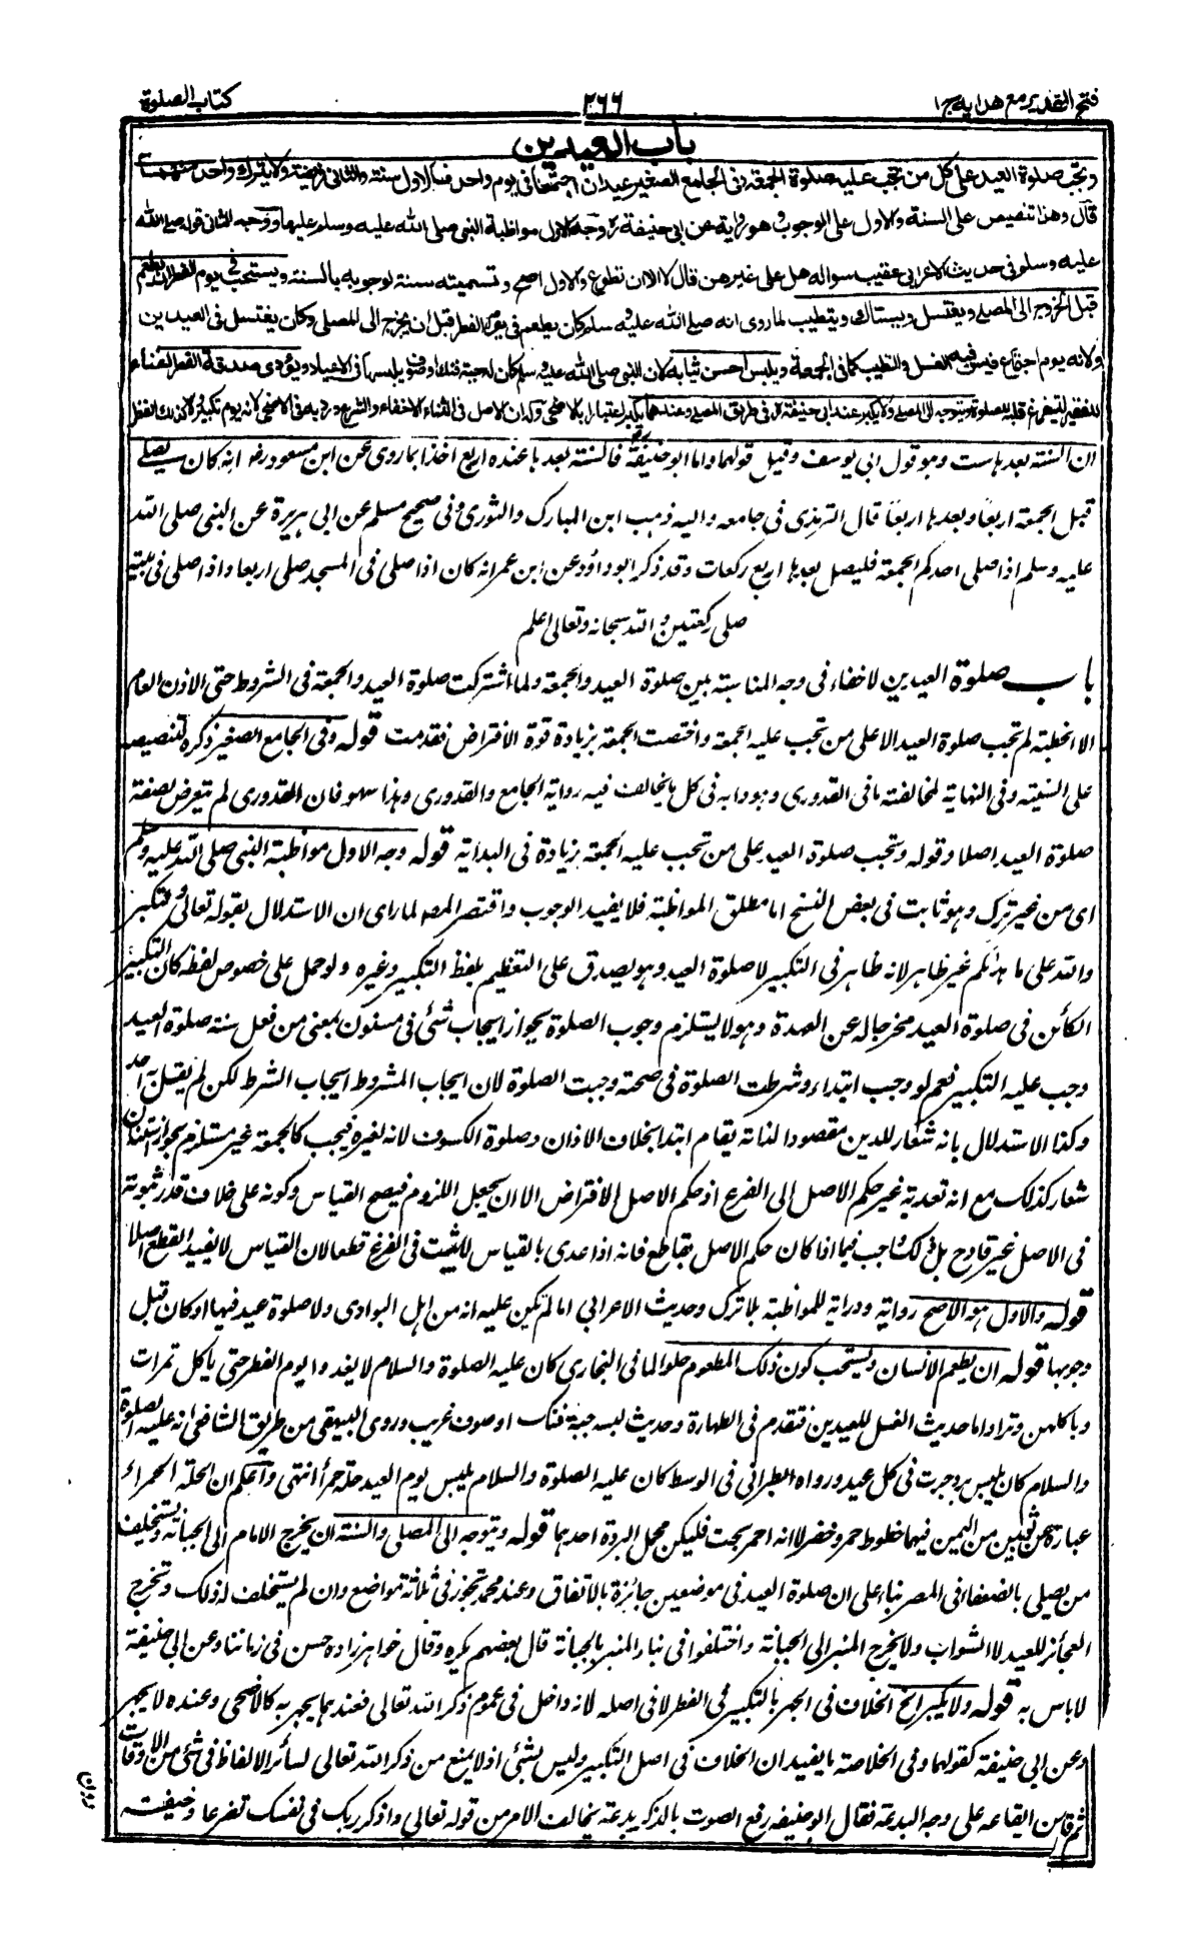 فتح القدير مع هدايه ج ١
٢٦٦
كتاب الصلوة
باب العيدين
وتجب صلوة العيد على كل من تجب عليه صلوة الجمعة وفى الجامع الصغير عيدان اجتمعا فى يوم واحد فالاول سنة والثانى فريضة ولا يترك واحد منهما
قال وهذا تنصيص على السنة والاول على الوجوب وهو رواية عن ابى حنيفة رح وجه الاول مواظبة النبى صلى الله عليه وسلم عليها ووجه الثانى قوله صلى الله
عليه وسلم فى حديث الاعرابى عقيب سواله هل على غيرهن قال لا الا ان تطوع والاول اصح وتسميته سنة لوجوبه بالسنة ويستحب فى يوم الفطر ان يطعم
قبل الخروج الى المصلى ويغتسل ويستاك ويتطيب لما روى انه صلى الله عليه وسلم كان يطعم فى يوم الفطر قبل ان يخرج الى المصلى وكان يغتسل فى العيدين
ولانه يوم اجتماع فيسن فيه الغسل والتطيب كما فى الجمعة ويلبس احسن ثيابه لان النبى صلى الله عليه وسلم كان له جبة فنك او صوف يلبسها فى الاعياد ويؤدى صدقة الفطر اغناء
للفقير ليتفرغ قلبه للصلوة ويتوجه الى المصلى ولا يكبر عند ابى حنيفة رح فى طريق المصلى وعندهما يكبر اعتبارا بالاضحى وله ان الاصل فى الثناء الاخفاء والشرع ورد به فى الاضحى لانه يوم تكبير ولا كذلك الفطر
ان السنة بعدها ست وهو قول ابى يوسف وقيل قولهما واما ابو حنيفة فالسنة بعدها عنده اربع اخذا بما روى عن ابن مسعود رض انه كان يصلى
قبل الجمعة اربعا وبعدها اربعا قال الترمذى فى جامعه واليه ذهب ابن المبارك والثورى وفى صحيح مسلم عن ابى هريرة عن النبى صلى الله
عليه وسلم اذا صلى احدكم الجمعة فليصل بعدها اربع ركعات وقد ذكر ابو داؤد عن ابن عمر انه كان اذا صلى فى المسجد صلى اربعا واذا صلى فى بيته
صلى ركعتين والله سبحانه وتعالى اعلم
باب صلوة العيدين لا خفاء فى وجه المناسبة بين صلوة العيد والجمعة ولما اشتركت صلوة العيد والجمعة فى الشروط حتى الاذن العام
الا الخطبة لم تجب صلوة العيد الا على من تجب عليه الجمعة واختصت الجمعة بزيادة قوة الافتراض فقدمت قوله وفى الجامع الصغير ذكره لتنصيصه
على السنية وفى النهاية لمخالفته ما فى القدورى وهو دابه فى كل ما يخالف فيه رواية الجامع والقدورى وهذا سهو فان القدورى لم يتعرض لصفة
صلوة العيد اصلا وقوله وتجب صلوة العيد على من تجب عليه الجمعة زيادة فى البداية قوله وجه الاول مواظبة النبى صلى الله عليه وسلم
اى من غير ترك وهو ثابت فى بعض النسخ اما مطلق المواظبة فلا يفيد الوجوب واقتصر المصـ لما راى ان الاستدلال بقوله تعالى ولتكبروا
والله على ما هداكم غير ظاهر لانه ظاهر فى التكبير لا صلوة العيد وهو يصدق على التعظيم بلفظ التكبير وغيره ولو حمل على خصوص لفظه كان التكبير
الكائن فى صلوة العيد مخرجا له عن العهدة وهو لا يستلزم وجوب الصلوة لجواز ايجاب شئ فى مسنون بمعنى من فعل سنة صلوة العيد
وجب عليه التكبير نعم لو وجب ابتداء وشرطت الصلوة فى صحته وجبت الصلوة لان ايجاب المشروط ايجاب الشرط لكن لم يقل به احد
وكذا الاستدلال بانه شعار للدين مقصودا لذاته يقام ابتدا بخلاف الاذان وصلوة الكسوف لانه لغيره فيجب كالجمعة غير مستلزم لجواز استنان
شعار كذلك مع انه تعدية غير حكم الاصل الى الفرع اذ حكم الاصل الافتراض الا ان يجعل اللزوم فيصح القياس وكونه على خلاف قدر ثبوته
فى الاصل غير قادح بل ذلك واجب فيما اذا كان حكم الاصل بقاطع فانه اذا عدى بالقياس لا يثبت فى الفرع قطعا لان القياس لا يفيد القطع اصلا
قوله والاول هو الاصح رواية ودراية للمواظبة بلا ترك وحديث الاعرابى اما لم تكن عليه انه من اهل البوادى ولا صلوة عيد فيها او كان قبل
وجوبها قوله ان يطعم الانسان ويستحب كون ذلك المطعوم حلوا لما فى البخارى كان عليه الصلوة والسلام لا يغدوا يوم الفطر حتى ياكل تمرات
وياكلهن وترا واما حديث الغسل للعيدين فتقدم فى الطهارة وحديث لبسه جبة فنك او صوف غريب وروى البيهقى من طريق الشافعى انه عليه الصلوة
والسلام كان يلبس برد حبرة فى كل عيد ورواه الطبرانى فى الوسط كان عليه الصلوة والسلام يلبس يوم العيد حلة حمرأ انتهى واعلم ان الحلة الحمراء
عبارة عن ثوبين من اليمن فيهما خطوط حمر وخضر لا انه احمر بحت فليكن محمل البردة احدهما قوله ويتوجه الى المصلى والسنة ان يخرج الامام الى الجبانة ويستخلف
من يصلى بالضعفاء فى المصر بناء على ان صلوة العيد فى موضعين جائزة بالاتفاق وعند محمد تجوز فى ثلاثة مواضع وان لم يستخلف له ذلك وتخرج
العجائز للعيد لا الشواب ولا يخرج المنبر الى الجبانة واختلفوا فى بناء المنبر بالجبانة قال بعضهم يكره وقال خواهرزاده حسن فى زماننا وعن ابى حنيفة
لا باس به قوله ولا يكبر الخ الخلاف فى الجهر بالتكبير فى الفطر لا فى اصله لانه داخل فى عموم ذكر الله تعالى فعندهما يجهر به كالاضحى وعنده لا يجهر
وعن ابى حنيفة كقولهما وفى الخلاصة ما يفيد ان الخلاف فى اصل التكبير وليس بشئ اذ لا يمنع من ذكر الله تعالى لسائر الالفاظ فى شئ من الاوقات
من ايقاعه على وجه البدعة فقال ابو حنيفه رفع الصوت بالذكر بدعة يخالف الامر من قوله تعالى واذكر ربك فى نفسك تضرعا وخيفة